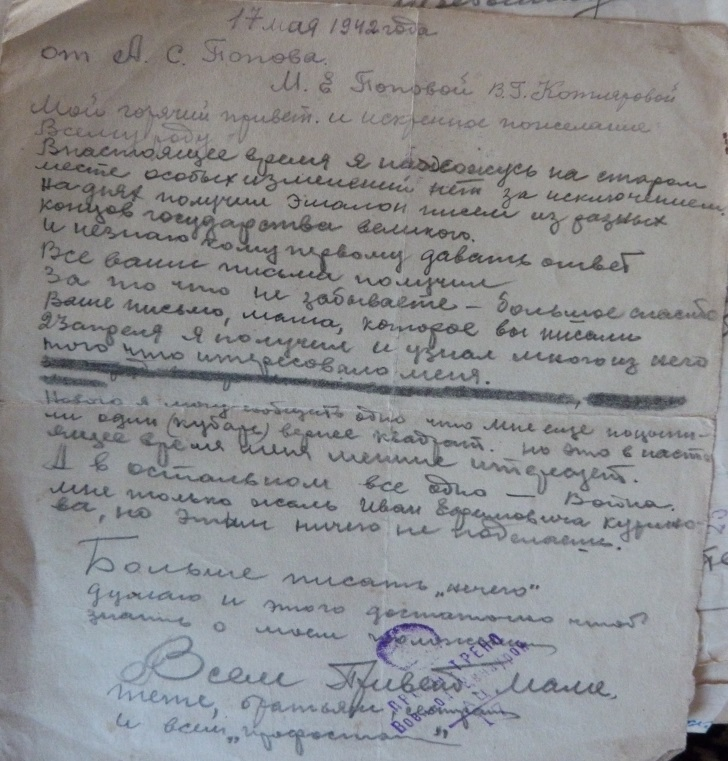 17 мая 1942 года
от А. С. Попова.
М. Е Поповой В.Г. Котляровой
Мой горячий привет. и искренное пожелание
Всему роду
Внастоящее время я нахожусь на старом
месте особых изменений нет за исключением
на днях получил эшалон писем из разных
концов государства великого.
и незнаю кому первому давать ответ
Все ваши письма получил
За то что не забываете – большое спасибо
Ваше письмо, мама, которое вы писали
23 апреля я получил и узнал много из него
того что интересовало меня.
Нового я могу сообщить одно что мне еще
ли один (кубарь) вернее квадрат. но это в насто
ящее время меня меньше интересует.
А в остальном все одно — Война.
мне только жаль Иван Ефимовича
ва, но этим ничего не поделаешь.
Больше писать „нечего"
думаю и этого достаточно чтоб
знать о моем положении
Всем Привет Маме.
тете, братьям, сестрам
и всем
ПРОСМОТРЕНО
Военной Цензурой